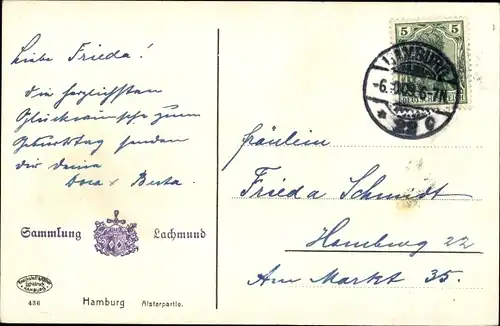 Liebe Frieda!
die herzlichsten
Glückwünsche zum
Geburtstag senden
dir deine
Dora & Berta.
Sammlung Lachmund
HAMBURG
436
Hamburg Alsterpartie.
5 5
HAMBURG
Fräulein
Frieda Schmidt
Hamburg 22
Am Markt 35.